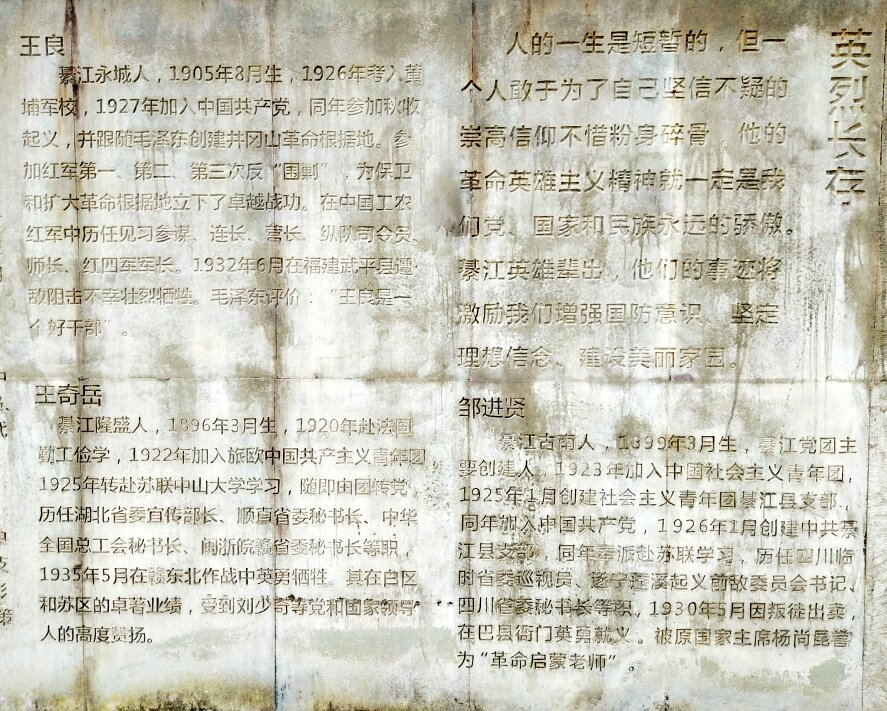 英烈长存
人的一生是短暂的，但一
个人敢于为了自己坚信不疑的
崇高信仰不惜粉身碎骨，他的
革命英雄主义精神就一定是我
们党、国家和民族永远的骄傲。
綦江英雄辈出，他们的事迹将
激励我们增强国防意识、坚定
理想信念、建设美丽家园。
王良
綦江永城人，1905年8月生，1926年考入黄
埔军校，1927年加入中国共产党，同年参加秋收
起义，并跟随毛泽东创建井冈山革命根据地。参
加红军第一、第二、第三次反“围剿”，为保卫
和扩大革命根据地立下了卓越战功。在中国工农
红军中历任见习参谋、连长、营长、纵队司令员、
师长、红四军军长。1932年6月在福建武平县遭
敌阻击不幸壮烈牺牲。毛泽东评价：“王良是一
个好干部”。
王奇岳
綦江隆盛人，1896年3月生，1920年赴法国
勤工俭学，1922年加入旅欧中国共产主义青年团
1925年转赴苏联中山大学学习，随即由团转党，
历任湖北省委宣传部长、顺直省委秘书长、中华
全国总工会秘书长、闽浙皖赣省委秘书长等职，
1935年5月在赣东北作战中英勇牺牲。其在白区
和苏区的卓著业绩，受到刘少奇等党和国家领导
人的高度赞扬。
邹进贤
綦江古南人，1899年3月生，綦江党团主
要创建人，1923年加入中国社会主义青年团，
1925年1月创建社会主义青年团綦江县支部、
同年加入中国共产党，1926年1月创建中共綦
江县支部，同年奉派赴苏联学习，历任四川临
时省委巡视员、遂宁蓬溪起义前敌委员会书记、
四川省委秘书长等职，1930年5月因叛徒出卖，
在巴县衙门英勇就义。被原国家主席杨尚昆誉
为“革命启蒙老师”。